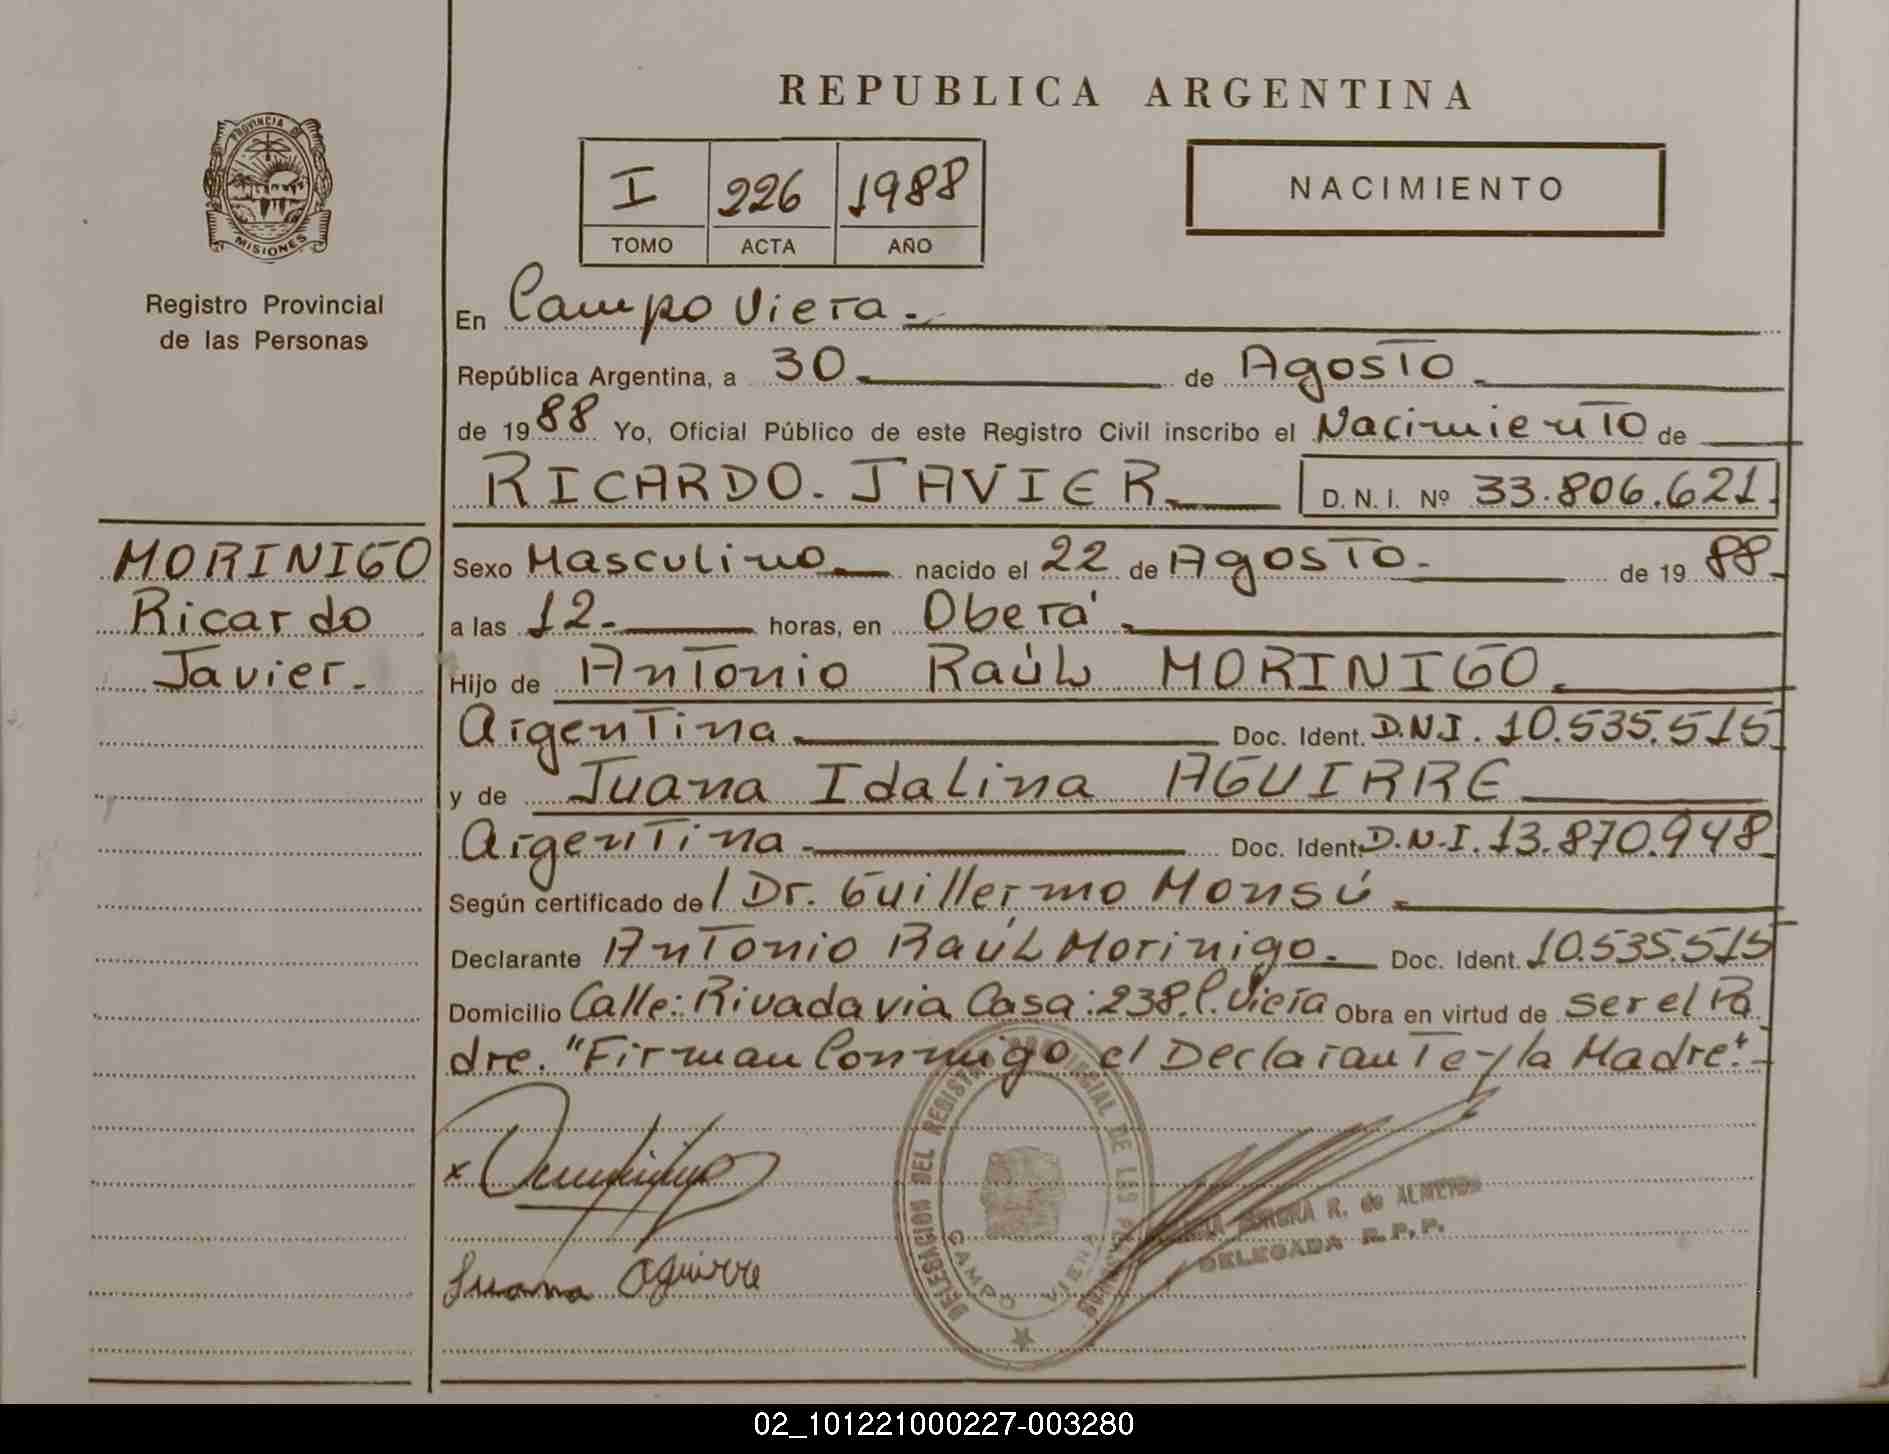 REPUBLICA ARGENTINA
PROVINCIA DE
MISIONES
Registro Provincial
de las Personas
I 226 1988
TOMO ACTA AÑO
NACIMIENTO
En Campo Viera.
República Argentina, a 30 de Agosto
de 1988 Yo, Oficial Público de este Registro Civil inscribo el Nacimiento de
RICARDO. JAVIER D. N. I. Nº 33.806.621.
MORINIGO
Ricardo
Javier.
Sexo Masculino nacido el 22 de Agosto. de 1988
a las 12. horas, en Oberá.
Hijo de Antonio Raúl MORINIGO.
Argentina Doc. Ident. D.N.I. 10.535.515
y de Juana Idalina AGUIRRE
Argentina Doc. Ident. D.N.I. 13.870.948
Según certificado del Dr. Guillermo Monsú.
Declarante Antonio Raúl Morinigo. Doc. Ident. 10.535.515
Domicilio Calle: Rivadavia Casa: 238. C. Viera Obra en virtud de ser el Pa
dre. "Firman Conmigo el Declarante y la Madre".
x
Juana Aguirre
DELEGACION DEL REGISTRO PROVINCIAL DE LAS PERSONAS
CAMPO VIERA
R. de ALMEIDA
DELEGADA R.P.P.
02_101221000227-003280